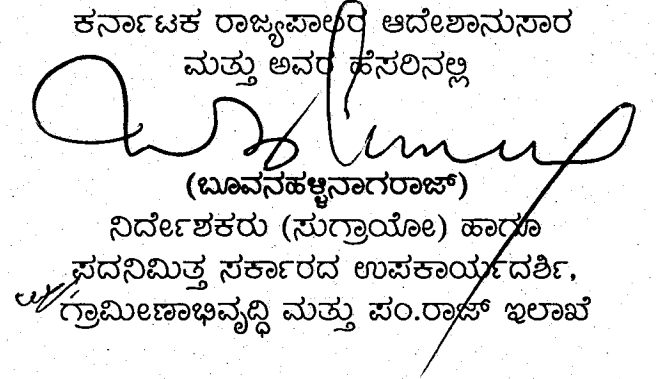 ಕರ್ನಾಟಕ ರಾಜ್ಯಪಾಲರ ಆದೇಶಾನುಸಾರ
ಮತ್ತು ಅವರ ಹೆಸರಿನಲ್ಲಿ
(ಬೂವನಹಳ್ಳಿನಾಗರಾಜ್)
ನಿರ್ದೇಶಕರು (ಸುಗ್ರಾಯೋ) ಹಾಗೂ
ಪದನಿಮಿತ್ತ ಸರ್ಕಾರದ ಉಪಕಾರ್ಯದರ್ಶಿ,
ಗ್ರಾಮೀಣಾಭಿವೃದ್ಧಿ ಮತ್ತು ಪಂ.ರಾಜ್ ಇಲಾಖೆ